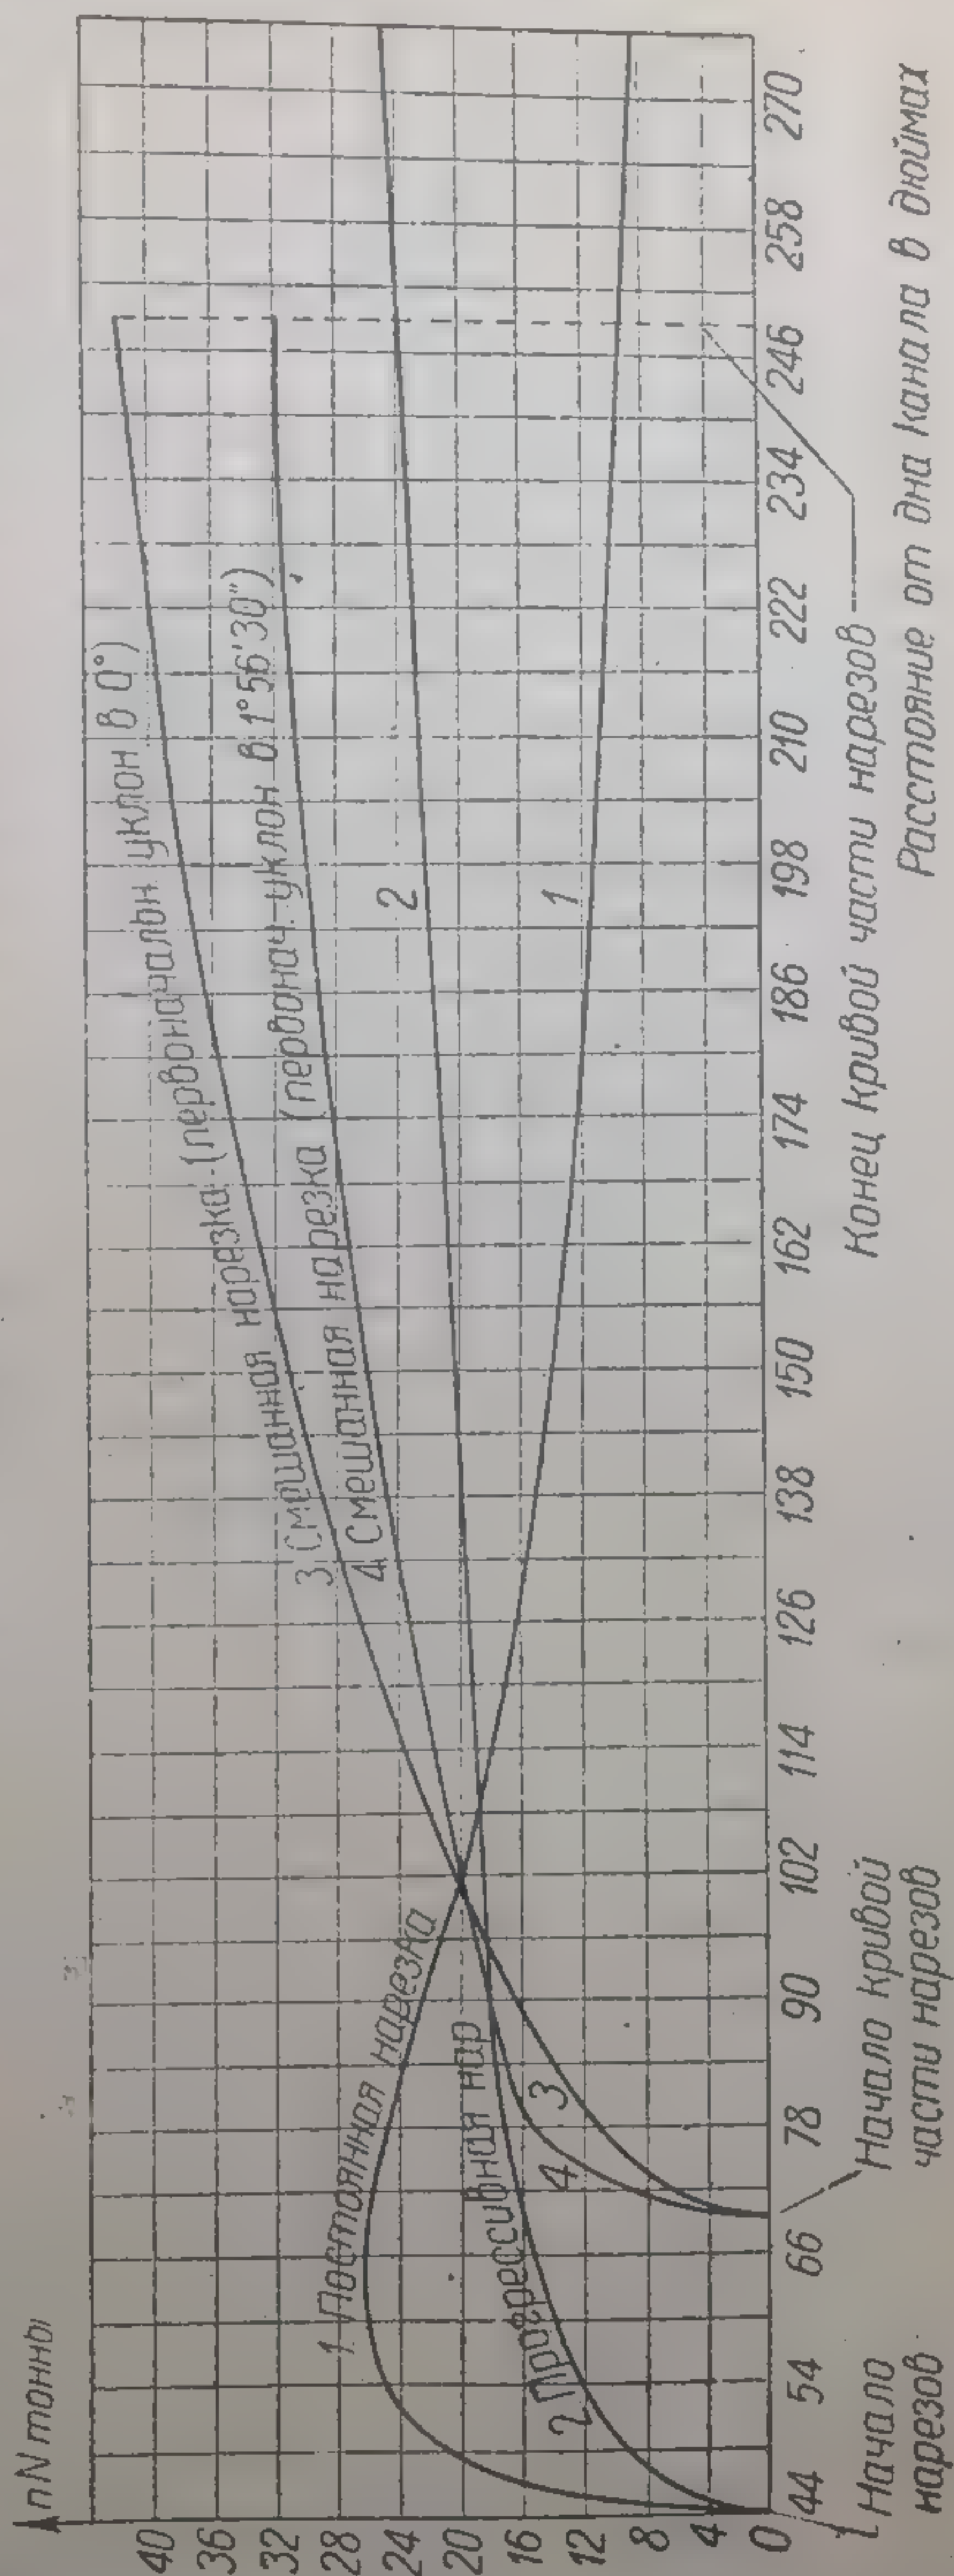 nN тонны
40
36
32
28
24
20
16
12
8
4
0
3 Смешанная нарезка (первоначальн уклон в 0°)
4 Смешанная нарезка (первонач уклон в 1°56'30")
1 Постоянная нарезка
2 Прогрессивная нар
2
1
3
4
44 54 66 78 90 102 114 126 138 150 162 174 186 198 210 222 234 246 258 270
Начало
нарезов
Начало кривой
части нарезов
Конец кривой части нарезов
Расстояние от дна канала в дюймах